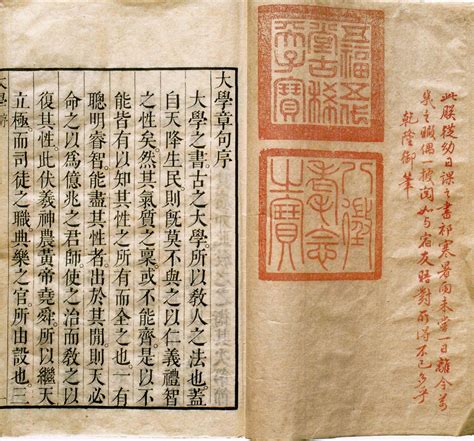 此朕從幼日課之書祁寒暑雨未嘗一日離今万
幾之暇偶一披閱如与宿友晤對所得不已多乎
乾隆御筆
五福五代
堂古稀
天子寶
八徵
耄念
之寶
大學章句序
大學之書古之大學所以教人之法也蓋
自天降生民則既莫不與之以仁義禮智
之性矣然其氣質之稟或不能齊是以不
能皆有以知其性之所有而全之也一有
聰明睿智能盡其性者出於其間則天必
命之以爲億兆之君師使之治而教之以
復其性此伏羲神農黃帝堯舜所以繼天
立極而司徒之職典樂之官所由設也三
大學序